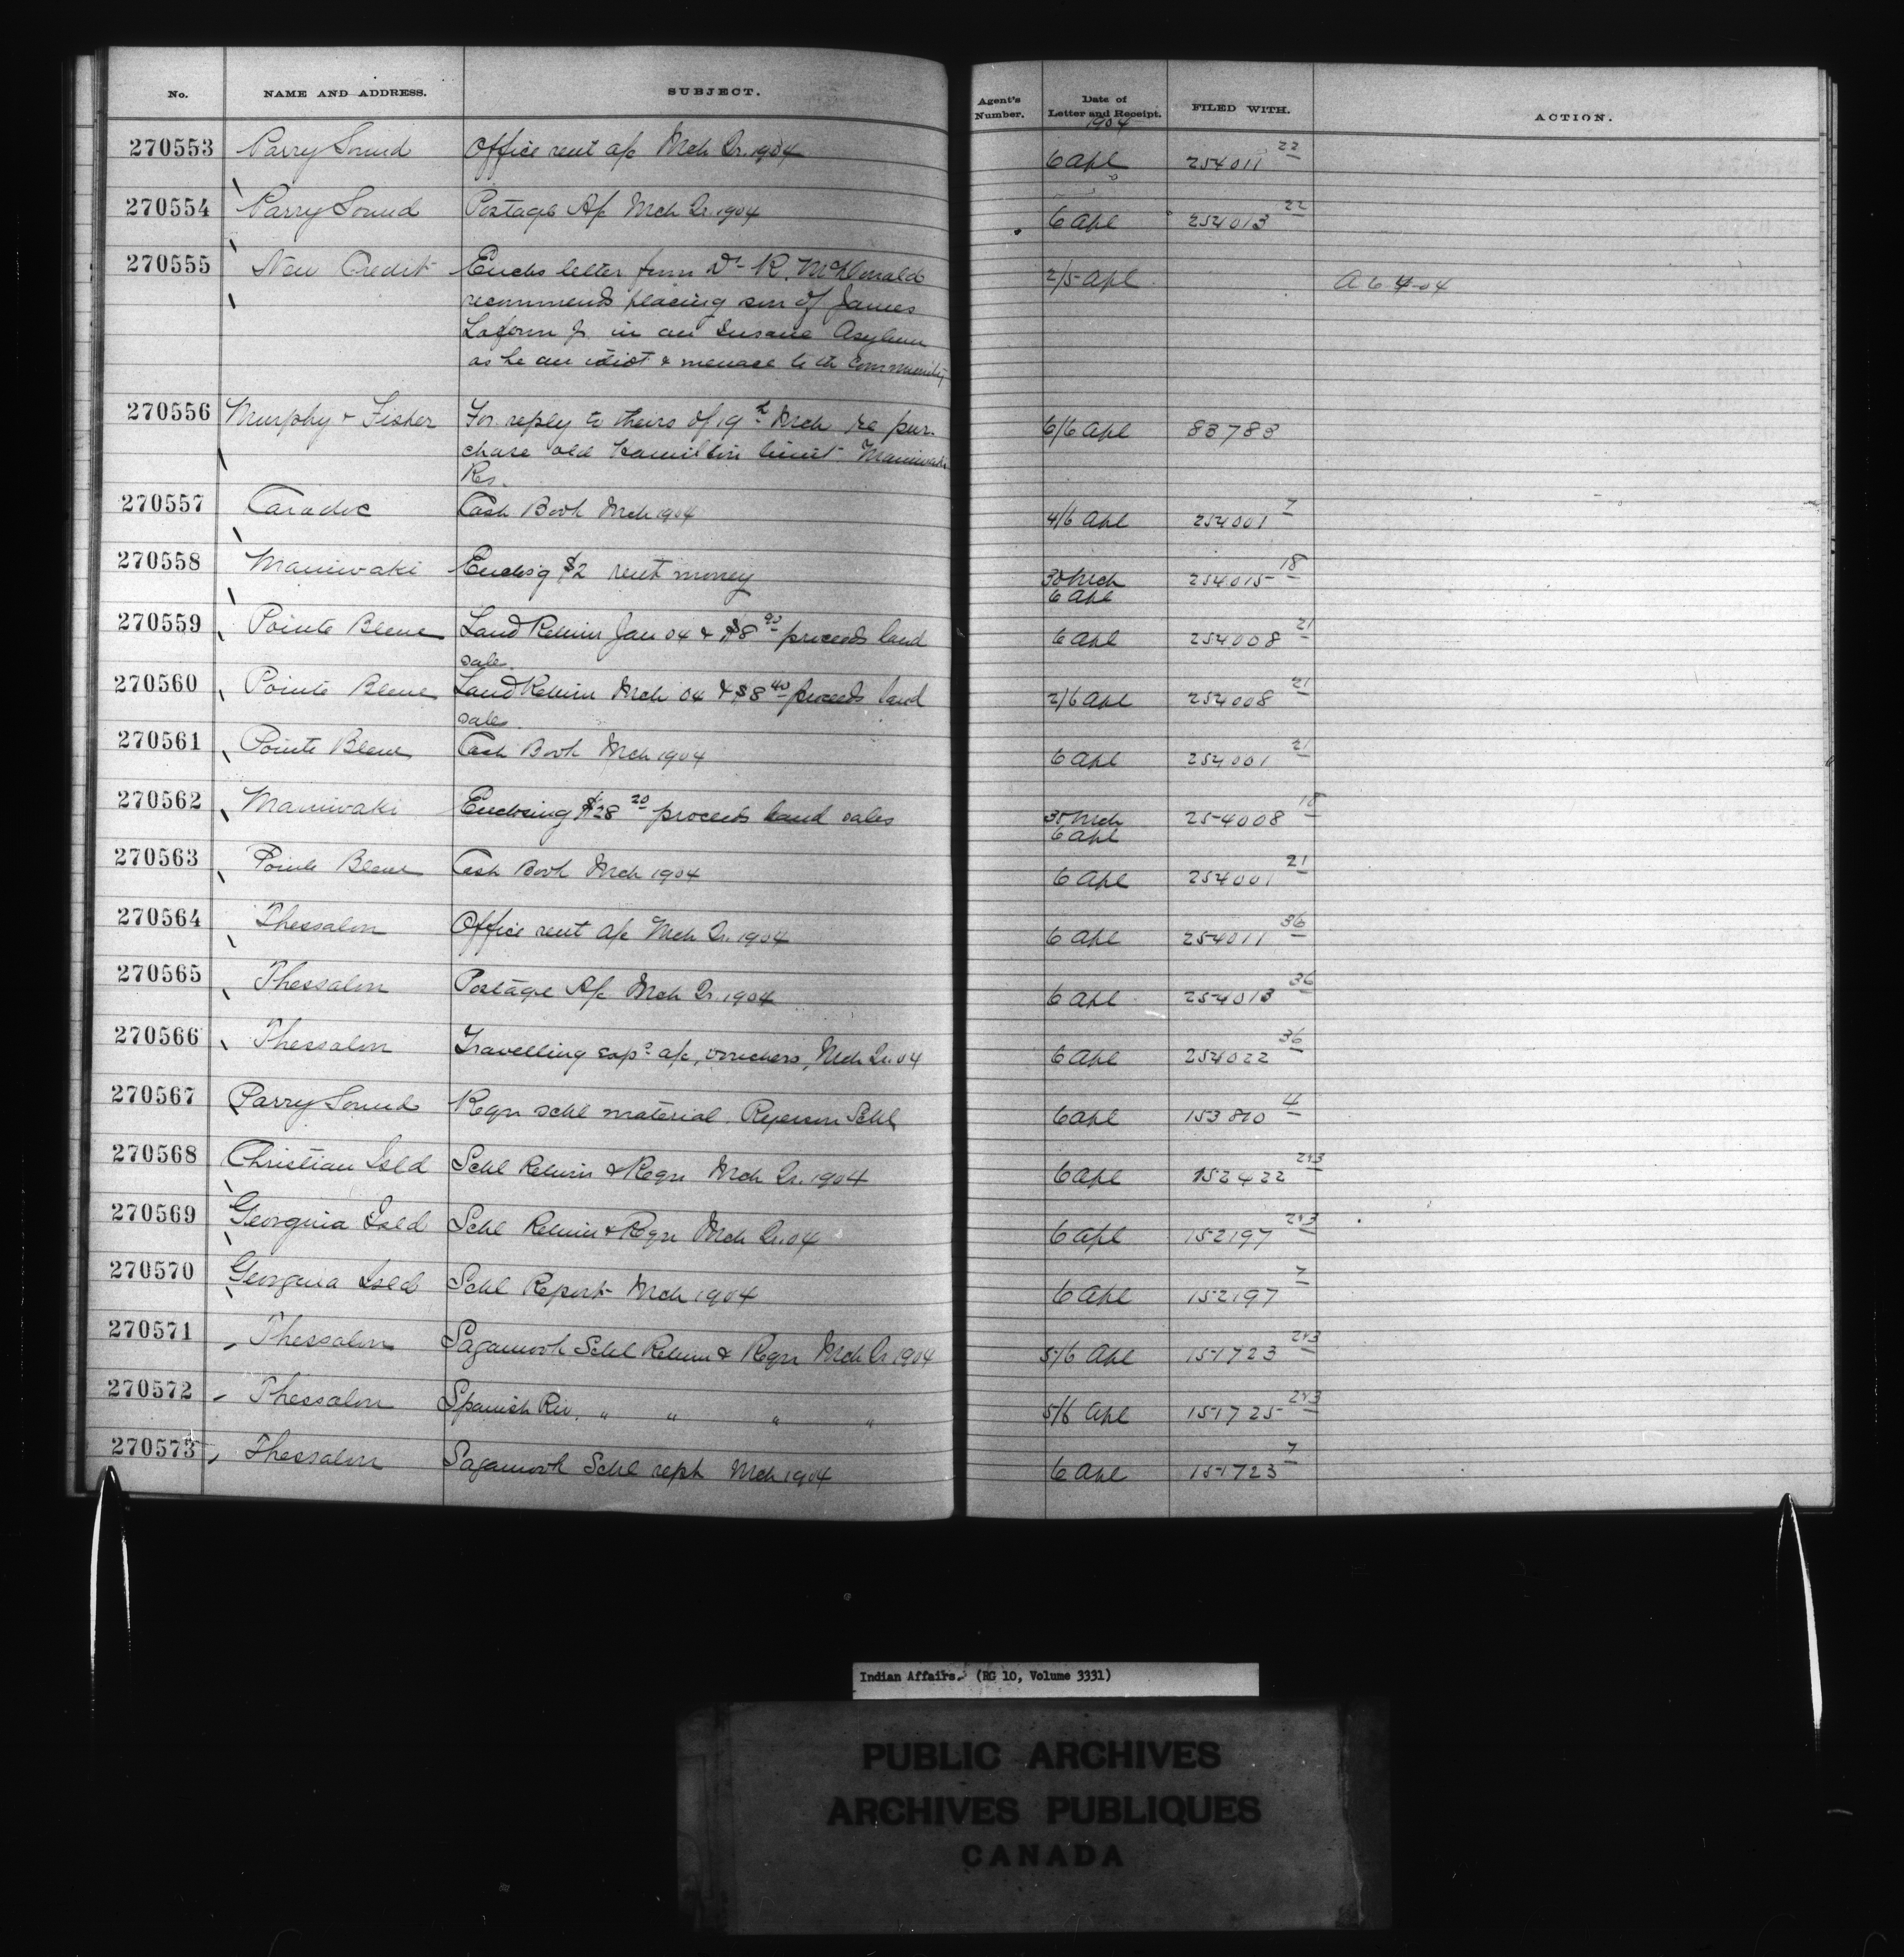 No. NAME AND ADDRESS. SUBJECT. Agent's Number. Date of Letter and Receipt. FILED WITH. ACTION.
1904
270553 Parry Sound Office rent a/c Mch Qr. 1904 6 Apl 254011 22
270554 Parry Sound Postage A/c Mch Qr. 1904 6 Apl 254013 22
270555 New Credit Encls letter from Dr R. McDonald 2/5 Apl A 6 4-04
recommends placing son of James
Laform Jr in an Insane Asylum
as he an idiot & menace to the community
270556 Murphy & Fisher For reply to theirs of 19th Mch re pur- 6/6 Apl 83783
chase old Hamilton limit Maniwaki
Res.
270557 Caradoc Cash Book Mch 1904 4/6 Apl 254001 7
270558 Maniwaki Enclos'g $2 rent money 30 Mch 254015 18
6 Apl
270559 Pointe Bleue Land Return Jan 04 & $8 90 proceeds land 6 Apl 254008 21
sale.
270560 Pointe Bleue Land Return Mch 04 & $8 40 proceeds land 2/6 Apl 254008 21
sales.
270561 Pointe Bleue Cash Book Mch 1904 6 Apl 254001 21
270562 Maniwaki Enclosing $28 20 proceeds land sales Mch 254008 18
6 Apl
270563 Pointe Bleue Cash Book Mch 1904 6 Apl 254001 21
270564 Thessalon Office rent A/c Mch Qr. 1904 6 Apl 254011 36
270565 Thessalon Postage A/c Mch Qr. 1904 6 Apl 254013 36
270566 Thessalon Travelling exps a/c, vouchers, Mch Qr. 04 6 Apl 254022 36
270567 Parry Sound Reqn schl material. Ryerson Schl 6 Apl 153810 4
270568 Christian Isld Schl Return & Reqn Mch Qr. 1904 6 Apl 152422 2+3
270569 Georgina Isld Schl Return & Reqn Mch Qr. 04 6 Apl 152197 2+3
270570 Georgina Isld Schl Report Mch 1904 6 Apl 152197 7
270571 Thessalon Sagamook Schl Return & Reqn Mch Qr 1904 5/6 Apl 151723 2+3
270572 Thessalon Spanish Riv. " " " " 5/6 Apl 151725 2+3
270573 Thessalon Sagamook Schl rept Mch 1904 6 Apl 151723 7
Indian Affairs. (RG 10, Volume 3331)
PUBLIC ARCHIVES
ARCHIVES PUBLIQUES
CANADA